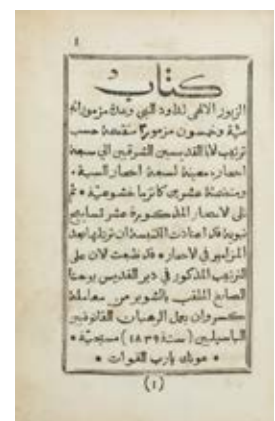 1
كتاب
الزبور الالهي لداود النبي وعدة مزموراته
ميّة وخمسون مزمورًا منقسمة حسب
ترتيب الآبا القديسين الشرقيين الي سبعة
اجزاء، معينة لسبعة احصار السبة •
ومنقسمة عشرين كاتزيا خشوعية • ثم
تلى الاحصار المذكورة عشر تسابيح
نبوية قد اعتادت الكنيسة ان ترتلها بعد
المزامير في الاحصار • قد طبعت الان على
الترتيب المذكور في دير القديس يوحنا
الصابغ الملقب بالشوير من معاملة
كسروان بعمل الرهبان القانونيين
الباسيليين (سنة ١٨٣٩) مسيحية •
• عونك يارب القوات •
(١)